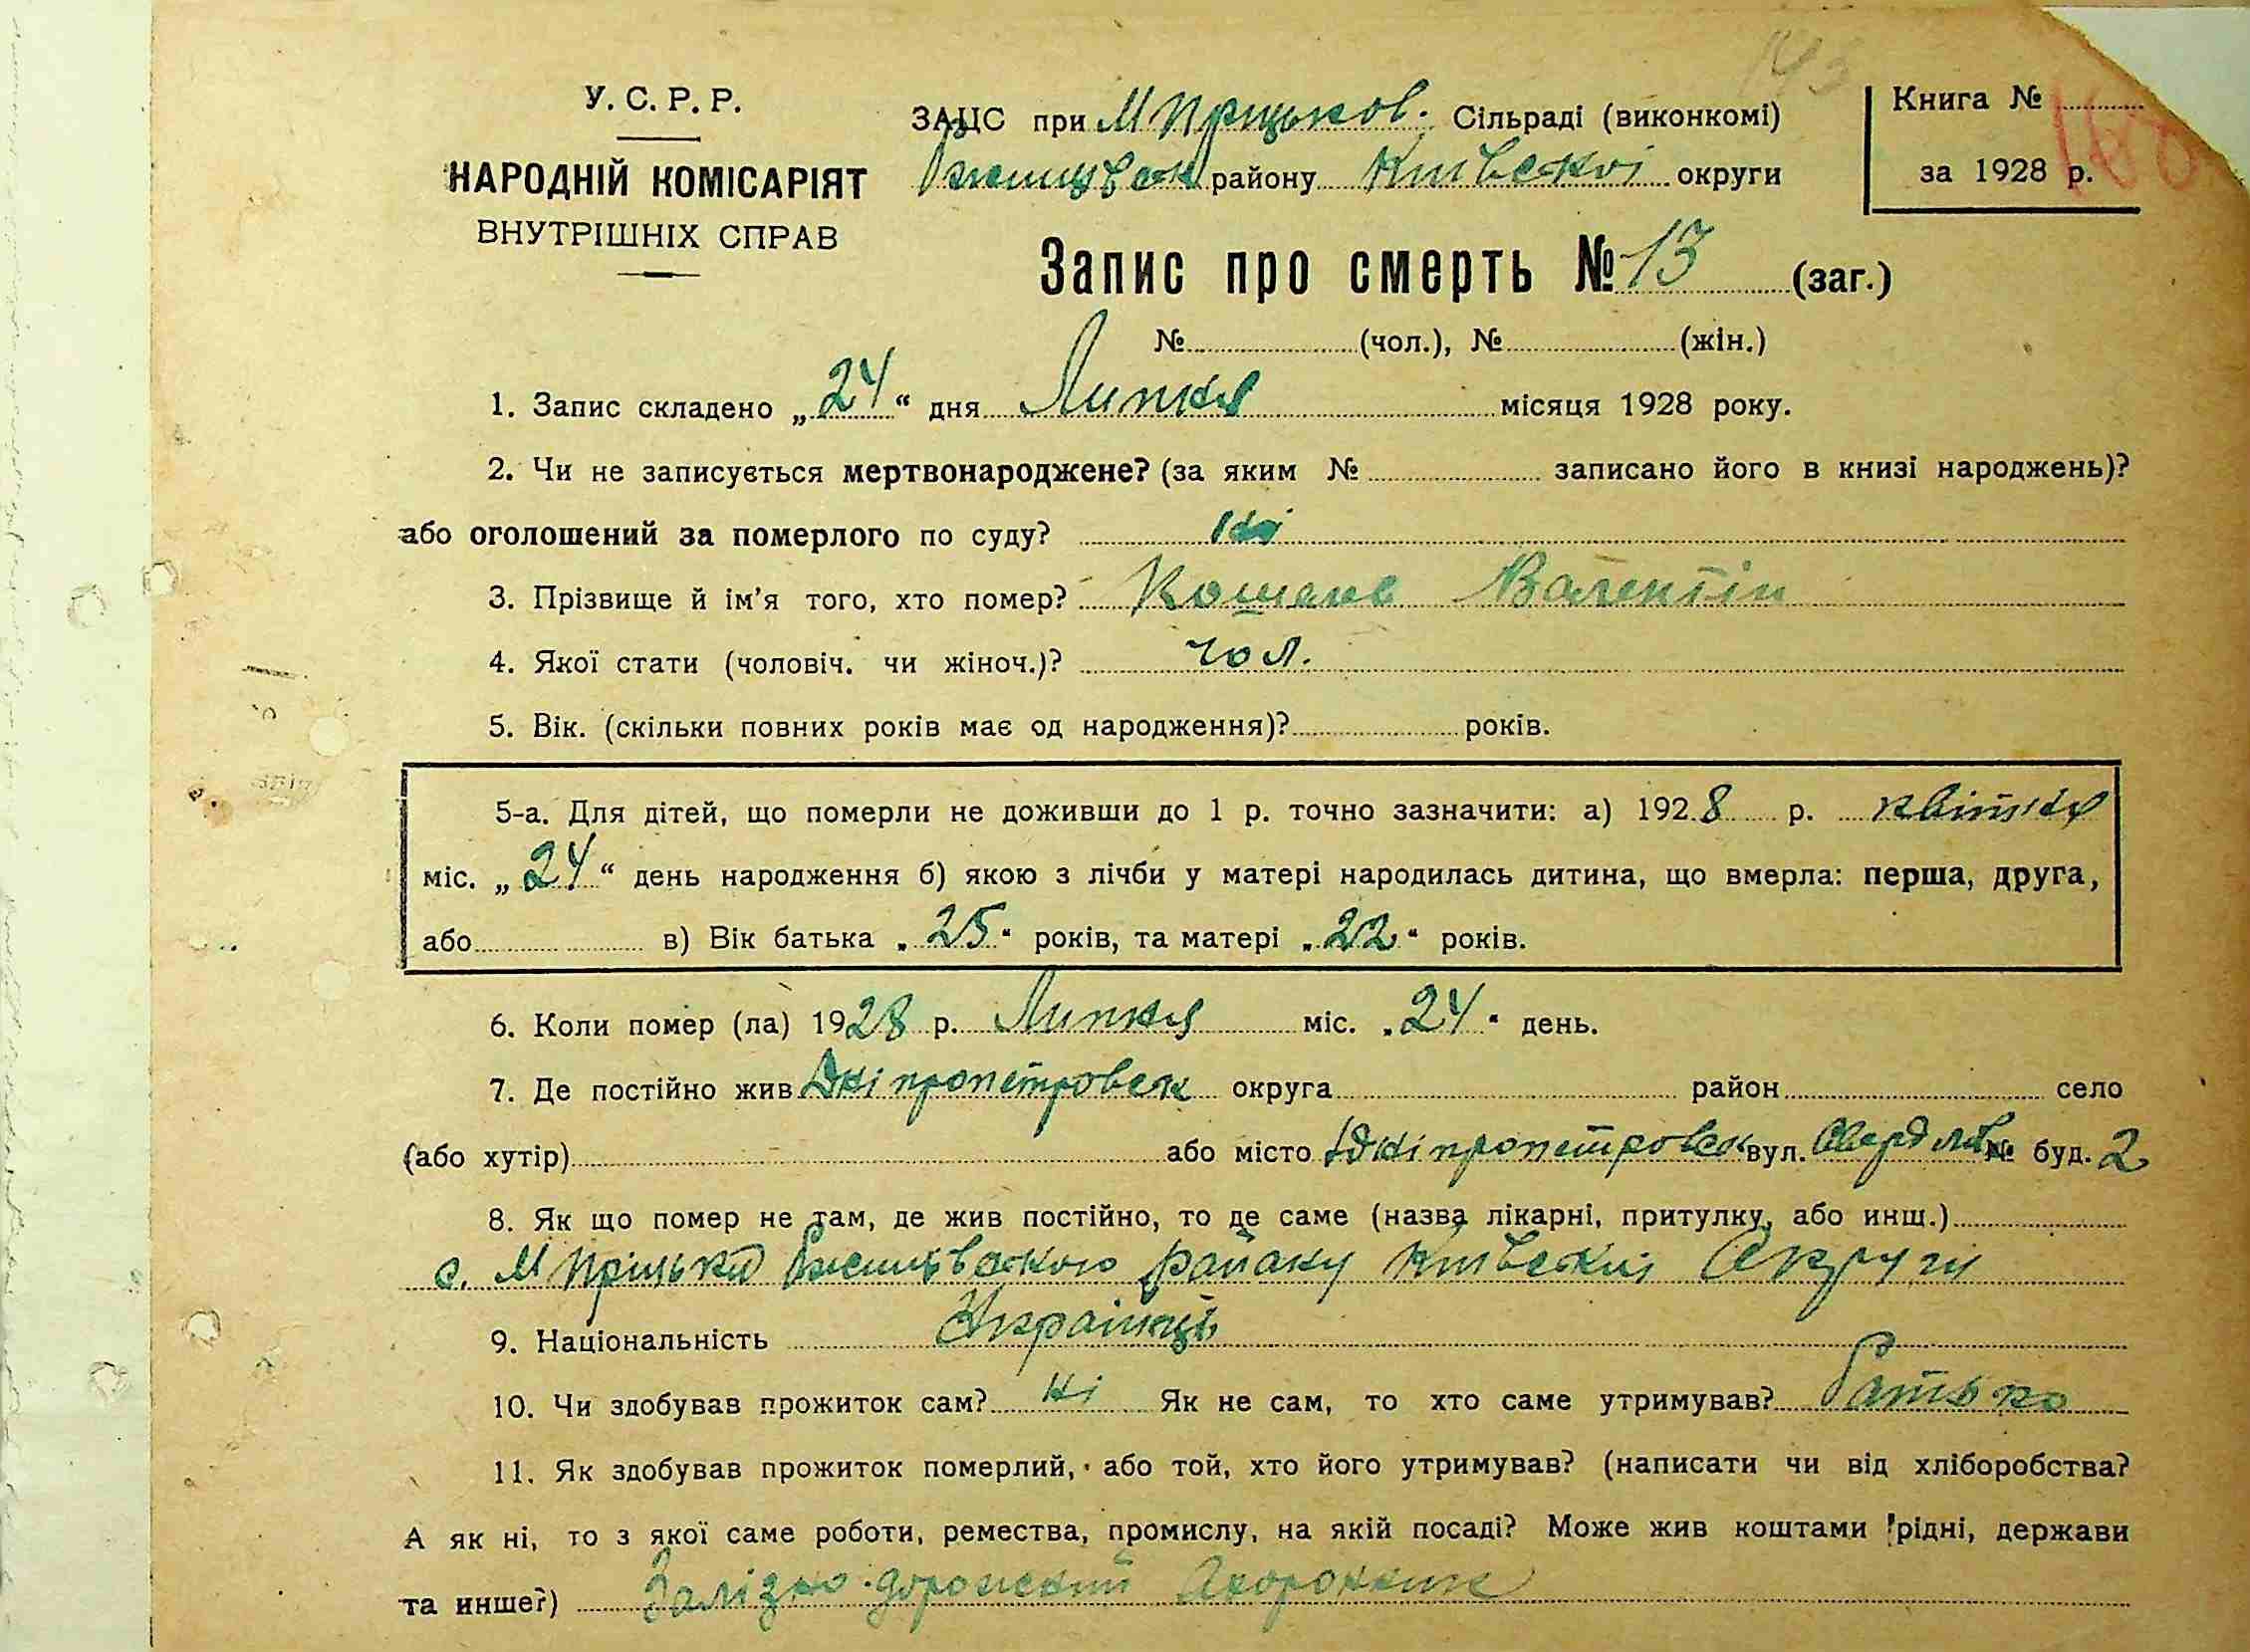 143
У. С. Р. Р.
НАРОДНІЙ КОМІСАРІЯТ
ВНУТРІШНІХ СПРАВ
ЗАЦС при М Прицьков. Сільраді (виконкомі)
Ржищівськ району Київської округи
Книга №
за 1928 р.
Запис про смерть № 13 (заг.)
№ (чол.), № (жін.)
1. Запис складено „24“ дня Липня місяця 1928 року.
2. Чи не записується мертвонароджене? (за яким № записано його в книзі народжень)?
або оголошений за померлого по суду? ні
3. Прізвище й ім'я того, хто помер? Валентін
4. Якої стати (чоловіч. чи жіноч.)? чол.
5. Вік. (скільки повних років має од народження)? років.
5-а. Для дітей, що померли не доживши до 1 р. точно зазначити: а) 1928 р. квітня
міс. „24“ день народження б) якою з лічби у матері народилась дитина, що вмерла: перша, друга,
або в) Вік батька „25“ років, та матері „22“ років.
6. Коли помер (ла) 1928 р. Липня міс. „24“ день.
7. Де постійно жив Дніпропетровськ округа район село
(або хутір) або місто Дніпропетровськ вул. Свердлов № буд. 2
8. Як що помер не там, де жив постійно, то де саме (назва лікарні, притулку, або инш.)
с. М Пріцьки Ржищівського району Київської Округи
9. Національність Українці
10. Чи здобував прожиток сам? ні Як не сам, то хто саме утримував? Батько
11. Як здобував прожиток померлий, або той, хто його утримував? (написати чи від хліборобства?
А як ні, то з якої саме роботи, ремества, промислу, на якій посаді? Може жив коштами рідні, держави
та иншеї) Залізно-дорожений Охоронник